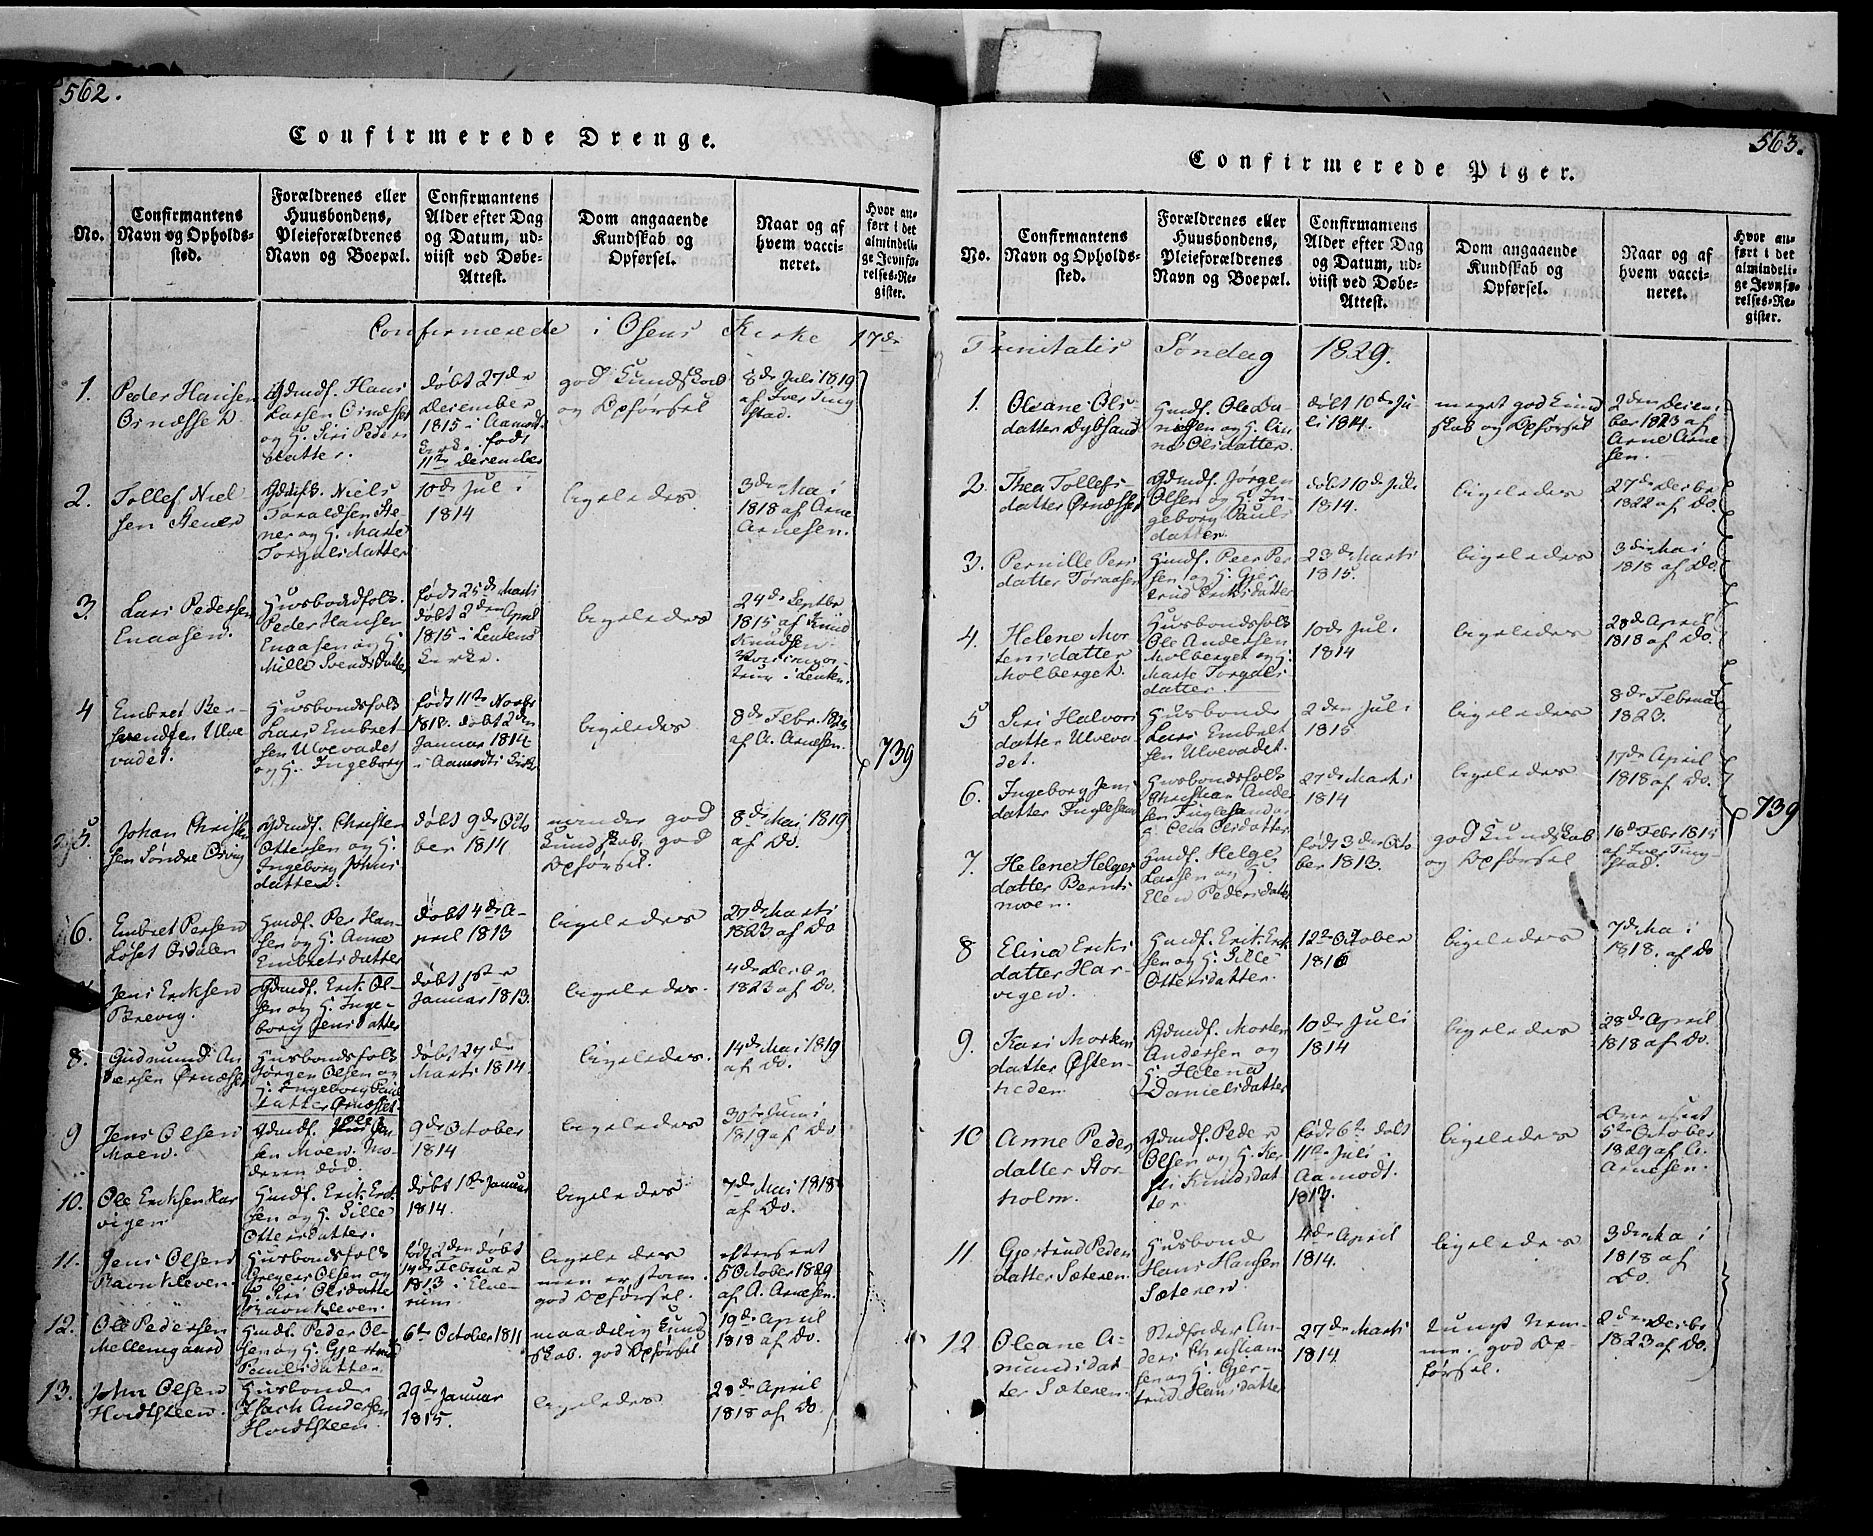 562.
Confirmerede Drenge.
No.
Confirmantens
Navn og Opholds-
sted.
Forældrenes eller
Huusbondens,
Pleieforældrenes
Navn og Boepæl.
Confirmantens
Alder efter Dag
og Datum, ud-
viist ved Døbe-
Attest.
Dom angaaende
Kundskab og
Opførsel.
Naar og af
hvem vacci-
neret.
Hvor an-
ført i det
almindeli-
ge Jevnfø-
relses-Re-
gister.
Confirmerede i Osens Kirke 17de
1.
Peder Hansen
Ornæsse D.
Gdmdf. Hans
Larsen Ornæsset
og H. Siri Peders
datter.
døbt 27de
December
1815 i Aamodts
Kirke. født
11te December
god Kundskab
og Opførsel
8de Juli 1819
af Iver Ting
stad.
2.
Tollef Niel
sen Stener
Gdmdf. Niels
Taraldsen Ste-
ner og H. Marte
Torgalsdatter
10de Juli
1814
ligeledes
3de Mai
1818 af Arne
Arnesen.
3.
Lars Pedersen
Enaasen.
Huusbondsfolk.
Peder Hansen
Enaasen og H.
Mille Svends Datter
født 25de Marts
døbt 2den April
1815 i Leutens
Kirke.
ligeledes
24de Septbr
1815 af Knud
Knudsen
i Leuten.
4
Embret Ber-
svendsen Ulve
vadet.
Huusbondsfolk
Lars Embret
sen Ulvevadet
og H. Ingeborg
født 11te Novbr
1813. døbt 2den
Januar 1814
i Aamodts Kirke
ligeledes
8de Febr. 1823
af A. Arnesen.
739
5.
Johan Christen
sen Søndre Osvig
Gdmdf. Christen
Ottersen og H.
Ingeborg Johns
datter.
døbt 9de Octo
ber 1814
minder god
Kundskab, god
Opførsel.
8de Mai 1819
af Do.
6.
Embret Persen
Løset Osdalen
Hmdf. Per Han-
sen og H. Anne
Embretsdatter
døbt 4de A-
pril 1813
ligeledes
27de Marts
1823 af Do
Jens Eriksen
Brevig.
Gdmdf. Erik Ol-
sen og H. Inge-
borg Jens Datter
døbt 1ste
Januar 1813.
ligeledes.
4de Decbr
1823 af Do.
8.
Gudmund An
dersen Ørnæsset
Huusbondsfolk
Jørgen Olsen og
H. Ingeborg Pauls
datter Ørnæsset.
døbt 27de
Marts 1814
ligeledes.
14de Mai 1819
af Do.
9
Jens Olsen
Moen.
Gdmdf. Ole Jen
sen Moen. Mo-
deren død.
9de October
1814
ligeledes
30te Juni
1819 af Do
10.
Ole Eriksen Har
vigen
Hmdf. Erik Erik
sen og H. Sille
Ottersdatter.
døbt 1de Januar
1814.
ligeledes
7de Mai 1818
af Do.
11.
Jens Olsen
Ravnkleven.
Huusbondsfolk
Greger Olsen og
H. Siri Olsdatter
Ravnkleven.
født 2den døbt
14de Februar
1813 i Elve-
rum.
ligeledes
men er stam.
god Opførsel.
efterseet
5 October 1829
af A. Arnesen.
12.
Ole Pedersen
Mellemgaard
Hmdf. Peder Ol-
sen og H. Gjertrud
Paulsdatter
6te October 1811
maadelig Kund
skab. god Opførsel
19de April
1818 af Do.
13.
John Olsen
Hvidtsteen.
Huusbonde
Isach Andersen
Hvidtsteen.
29de Januar
1815.
ligeledes
28de April
1818 af Do.
563.
Confirmerede Piger.
No.
Confirmantens
Navn og Opholds-
sted.
Forældrenes eller
Huusbondens,
Pleieforældrenes
Navn og Boepæl.
Confirmantens
Alder efter Dag
og Datum, ud-
viist ved Døbe-
Attest.
Dom angaaende
Kundskab og
Opførsel.
Naar og af
hvem vacci-
neret.
Hvor an-
ført i det
almindeli-
ge Jevnfø-
relses-Re-
gister.
Trinitatis Søndag 1829.
1.
Oleane Ols-
datter Dybsand
Hmdf. Ole Da-
nielsen og H. Lin
ne Olsdatter.
døbt 10de Ju-
li 1814.
meget god Kund
skab og Opførsel
2den Decem-
ber 1823 af
Arne Arne
sen.
2.
Thea Tollefs-
datter Ørnæsset
Gdmdf. Jørgen
Olsen og H. In-
geborg Pauls
datter.
døbt 10de Juli
1814.
ligeledes
27de Decbr
1822 af Do.
3.
Pernille Pers
datter Toraasen
Hmdf. Peer Per
sen og H. Gjer-
trud Eriksdatter
23de Marts
1815.
ligeledes
3de Mai
1818 af Do.
4.
Helene Mor
tensdatter
Molberget.
Huusbondsfolk
Ole Andersen
Molberget og H.
Marte Torgals
datter.
10de Juli
1814
ligeledes
28de April
1818 af Do.
5
Siri Halvors
datter Ulveva-
det.
Huusbonde
Lars Embret
sen Ulvevadet.
2den Juli
1815
ligeledes
8de Februar
1823.
6.
Ingeborg Jens
datter Fuglesan
Huusbondsfolk
Christian Ander
sen Fuglesand og
H. Elea Olsdatter
27de Marts
1814
ligeledes
17de April
1818 af Do.
739
7.
Helene Helges
datter Bernts
moen.
Hmdf. Helge
Larsen og H.
Elen Pedersdatter
født 3de Octo
ber 1813.
god Kundskab
og Opførsel
16de Febr 1815
af Iver Ting-
stad.
8
Elina Eriks
datter Har-
vigen.
Hmdf. Erik Erik
sen og H. Sille
Ottersdatter.
12te October
1816
ligeledes
7de Mai
1818. af Do
9.
Kari Morten
datter Østen-
heden
Gdmdf. Morten
Andersen og
H. Helena
Danielsdatter
10de Juli
1814
ligeledes
28de April
1818 af Do.
10
Anne Peders
datter Stor-
holm.
Gdmdf. Peder
Olsen og H. Ker-
sti Knudsdat
ter.
født 6te døbt
11te Juli
Aamodt.
1813.
ligeledes
5te October
1829 af A.
Arnesen.
11
Gjertrud Peders
datter Sæteren.
Huusbonde
Hans Hansen
Sæteren
4de April
1814.
ligeledes
3de Mai
1818 af
Do.
12
Oleane A-
mundsdat-
ter Sæteren.
Stedfader An-
ders Christian-
sen og H. Gjer-
trud Hansdatter
27de Marts
1814.
tungt Nem-
me. god Op-
førsel.
2den Decbr
1823 af Do.